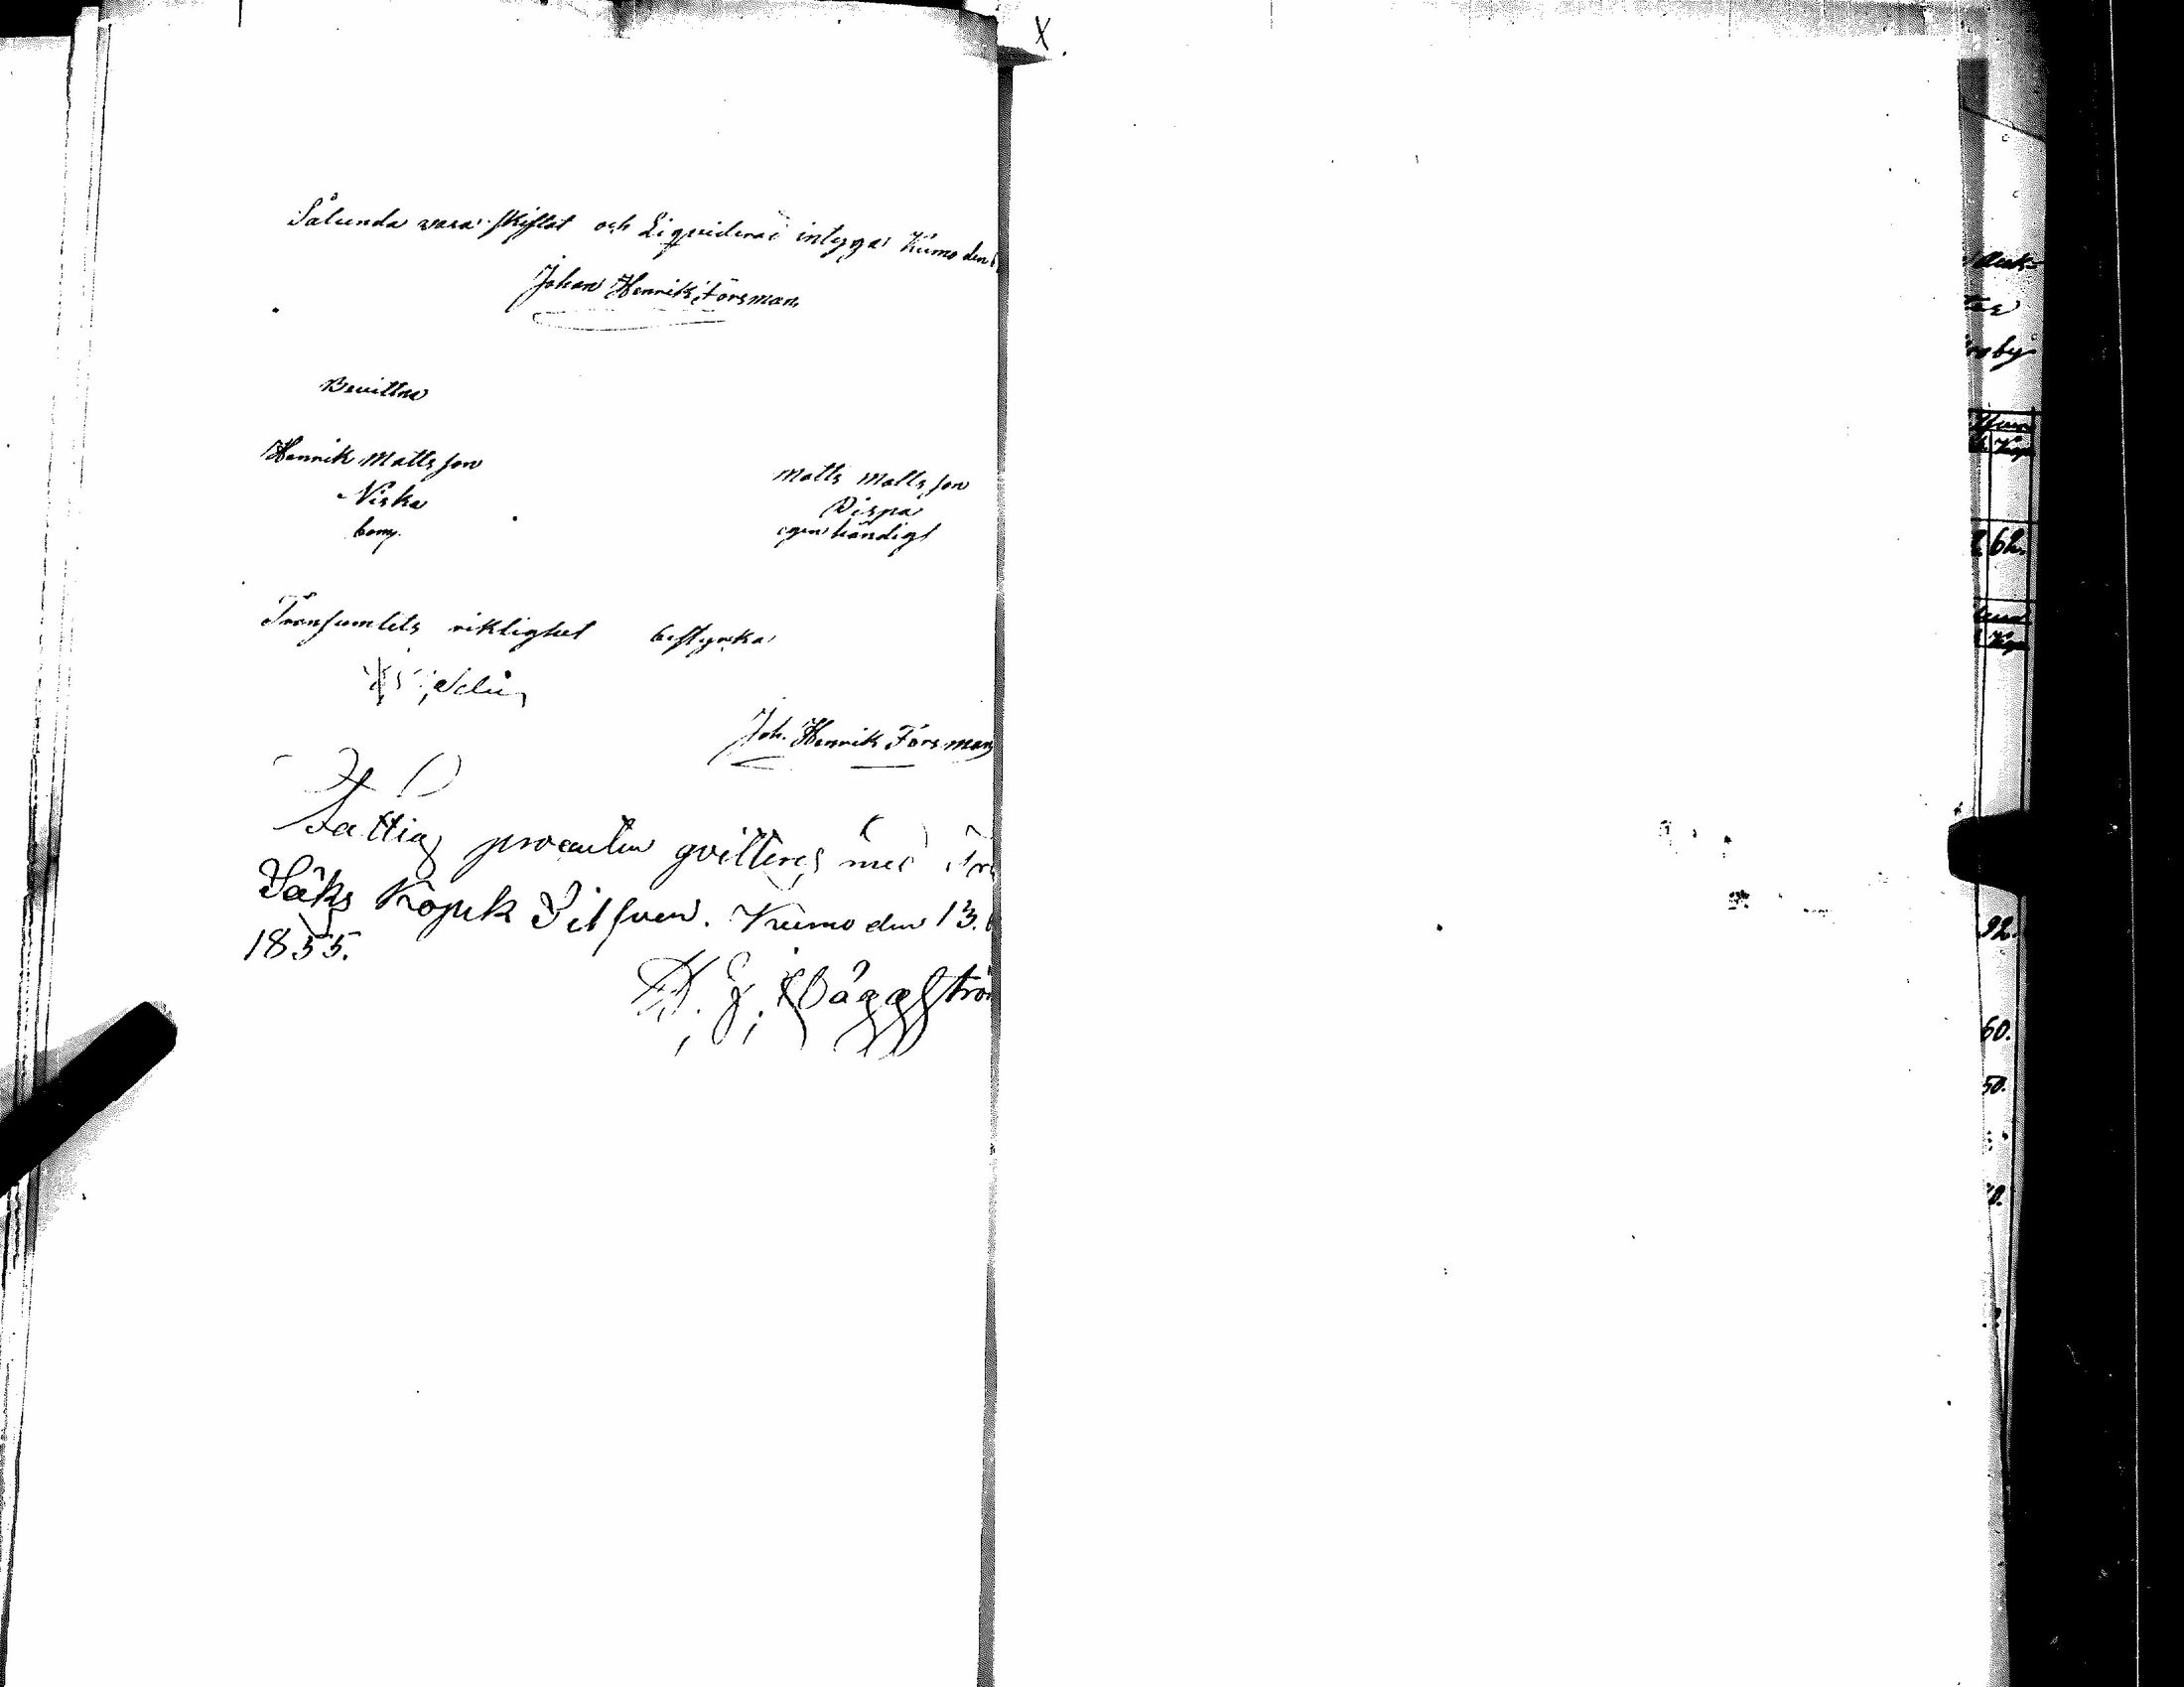 X.
Sålunda vara skiftat och Liqviderat intygar Kumo den
Johan Henrik Forsman
Bevittna
Henrik Mattsson
Niska
bom.
Matts Mattsson
Pispa
egenhändigt
Transumtets riktighet bestyrka
Joh. Henrik Forsman
Fattig procenten qvitteras med
Säks Kopek Silfver. Kumo den 13.
1855.
Häggströ
62.
92.
60.
50.